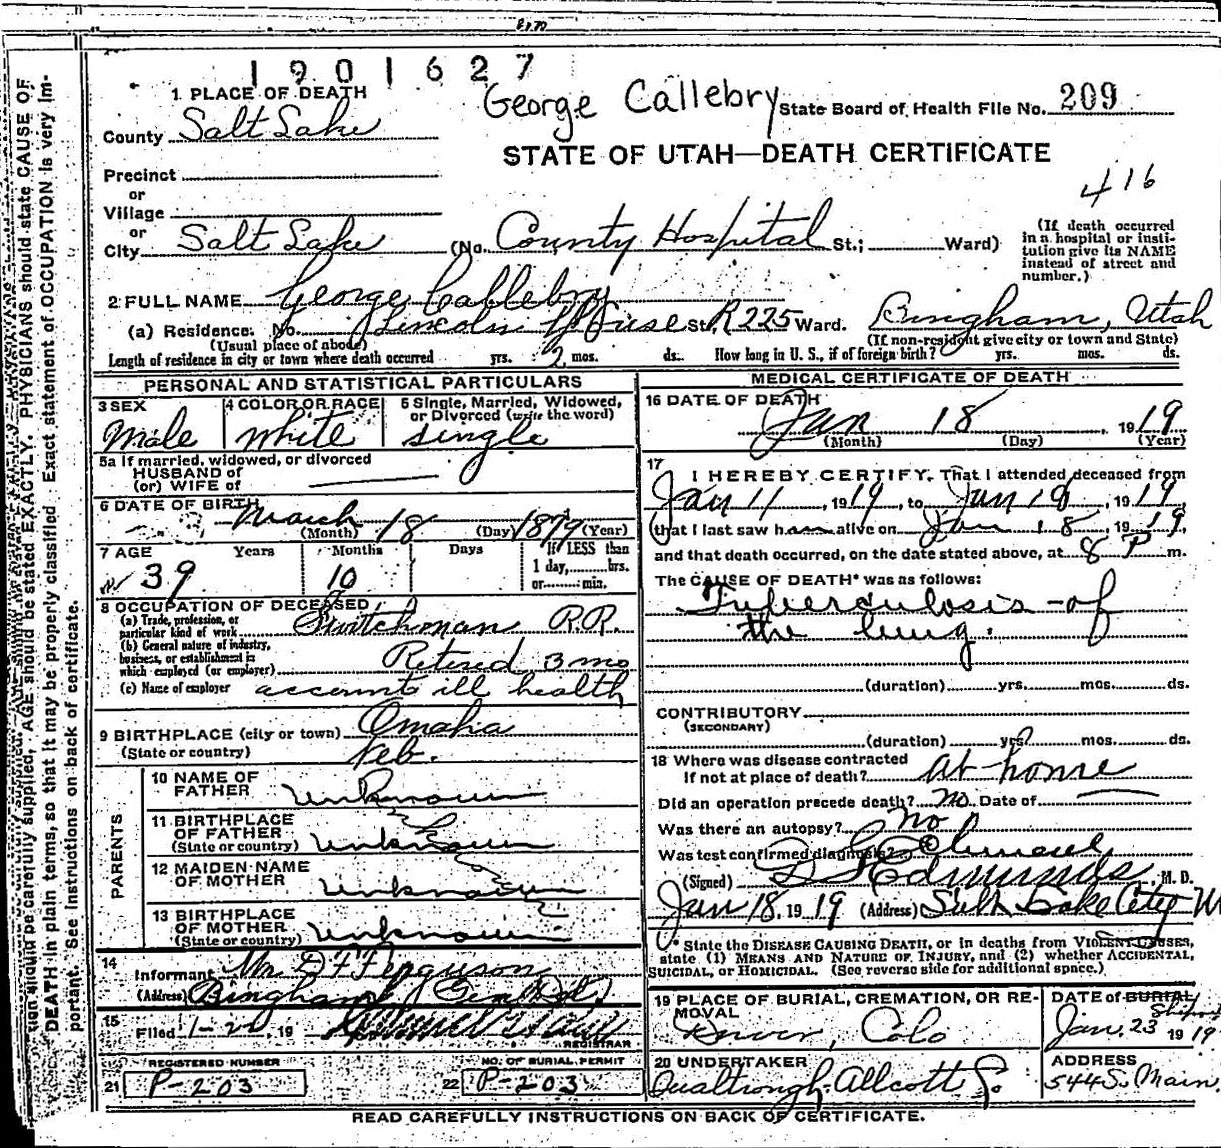 1901627
George Callebry
State Board of Health File No. 209
1 PLACE OF DEATH
County Salt Lake
STATE OF UTAH—DEATH CERTIFICATE
416
Precinct
or
Village
or
City Salt Lake (No. County Hospital St.; Ward)
(If death occurred in a hospital or insti-
tution give its NAME
instead of street and
number.)
2 FULL NAME George Callebry
(a) Residence. No. Lincoln House St. R225 Ward. Bingham, Utah
(Usual place of abode) (If non-resident give city or town and State)
Length of residence in city or town where death occurred yrs. 2 mos. ds. How long in U. S., if of foreign birth? yrs. mos. ds.
PERSONAL AND STATISTICAL PARTICULARS
3 SEX Male
4 COLOR OR RACE white
5 Single, Married, Widowed,
or Divorced (write the word)
single
5a If married, widowed, or divorced
HUSBAND of
(or) WIFE of
6 DATE OF BIRTH March 18 1879
(Month) (Day) (Year)
7 AGE Years Months Days If LESS than
1 day, hrs.
or min.
39 10
8 OCCUPATION OF DECEASED
(a) Trade, profession, or
particular kind of work Switchman R.R.
(b) General nature of industry,
business, or establishment in
which employed (or employer) Retired 3 mo
(c) Name of employer account ill health
9 BIRTHPLACE (city or town) Omaha
(State or country) Neb.
PARENTS
10 NAME OF
FATHER Unknown
11 BIRTHPLACE
OF FATHER
(State or country) Unknown
12 MAIDEN NAME
OF MOTHER Unknown
13 BIRTHPLACE
OF MOTHER
(State or country) Unknown
14
Informant Mr D F Ferguson
(Address) Bingham (Gen Del)
15
Filed 1-20, 19
REGISTRAR
REGISTERED NUMBER
21 P-203
NO. OF BURIAL PERMIT
22 P-203
MEDICAL CERTIFICATE OF DEATH
16 DATE OF DEATH
Jan 18, 1919
(Month) (Day) (Year)
17
I HEREBY CERTIFY, That I attended deceased from
Jan 11, 1919, to Jan 18, 1919,
that I last saw him alive on Jan 18, 1919,
and that death occurred, on the date stated above, at 8 P m.
The CAUSE OF DEATH* was as follows:
Tuberculosis of
the lung.
(duration) yrs. mos. ds.
CONTRIBUTORY
(SECONDARY)
(duration) yrs. mos. ds.
18 Where was disease contracted
if not at place of death? at home
Did an operation precede death? No Date of
Was there an autopsy? No
What test confirmed diagnosis?
(Signed) Edmunds, M. D.
Jan 18, 1919 (Address) Salt Lake City
* State the DISEASE CAUSING DEATH, or in deaths from VIOLENT CAUSES,
state (1) MEANS AND NATURE OF INJURY, and (2) whether ACCIDENTAL,
SUICIDAL, or HOMICIDAL. (See reverse side for additional space.)
19 PLACE OF BURIAL, CREMATION, OR RE-
MOVAL
Denver, Colo
DATE of BURIAL
Jan. 23 1919
20 UNDERTAKER
Qualtrough-Allcott
ADDRESS
544 S. Main
READ CAREFULLY INSTRUCTIONS ON BACK OF CERTIFICATE.
tion should be carefully supplied, AGE should be stated EXACTLY. PHYSICIANS should state CAUSE OF
DEATH in plain terms, so that it may be properly classified. Exact statement of OCCUPATION is very im-
portant. See instructions on back of certificate.